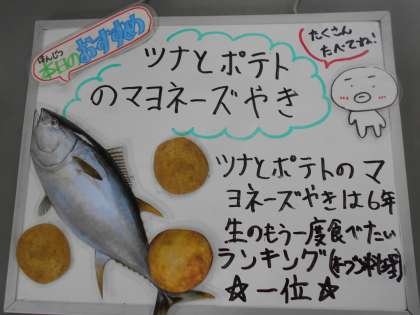 ほんじつ
本日のおすすめ
ツナとポテト
のマヨネーズやき
たくさん
たべてね!
ツナとポテトのマ
ヨネーズやきは6年
生のもう一度食べたい
ランキング(オーブン料理)
☆一位☆